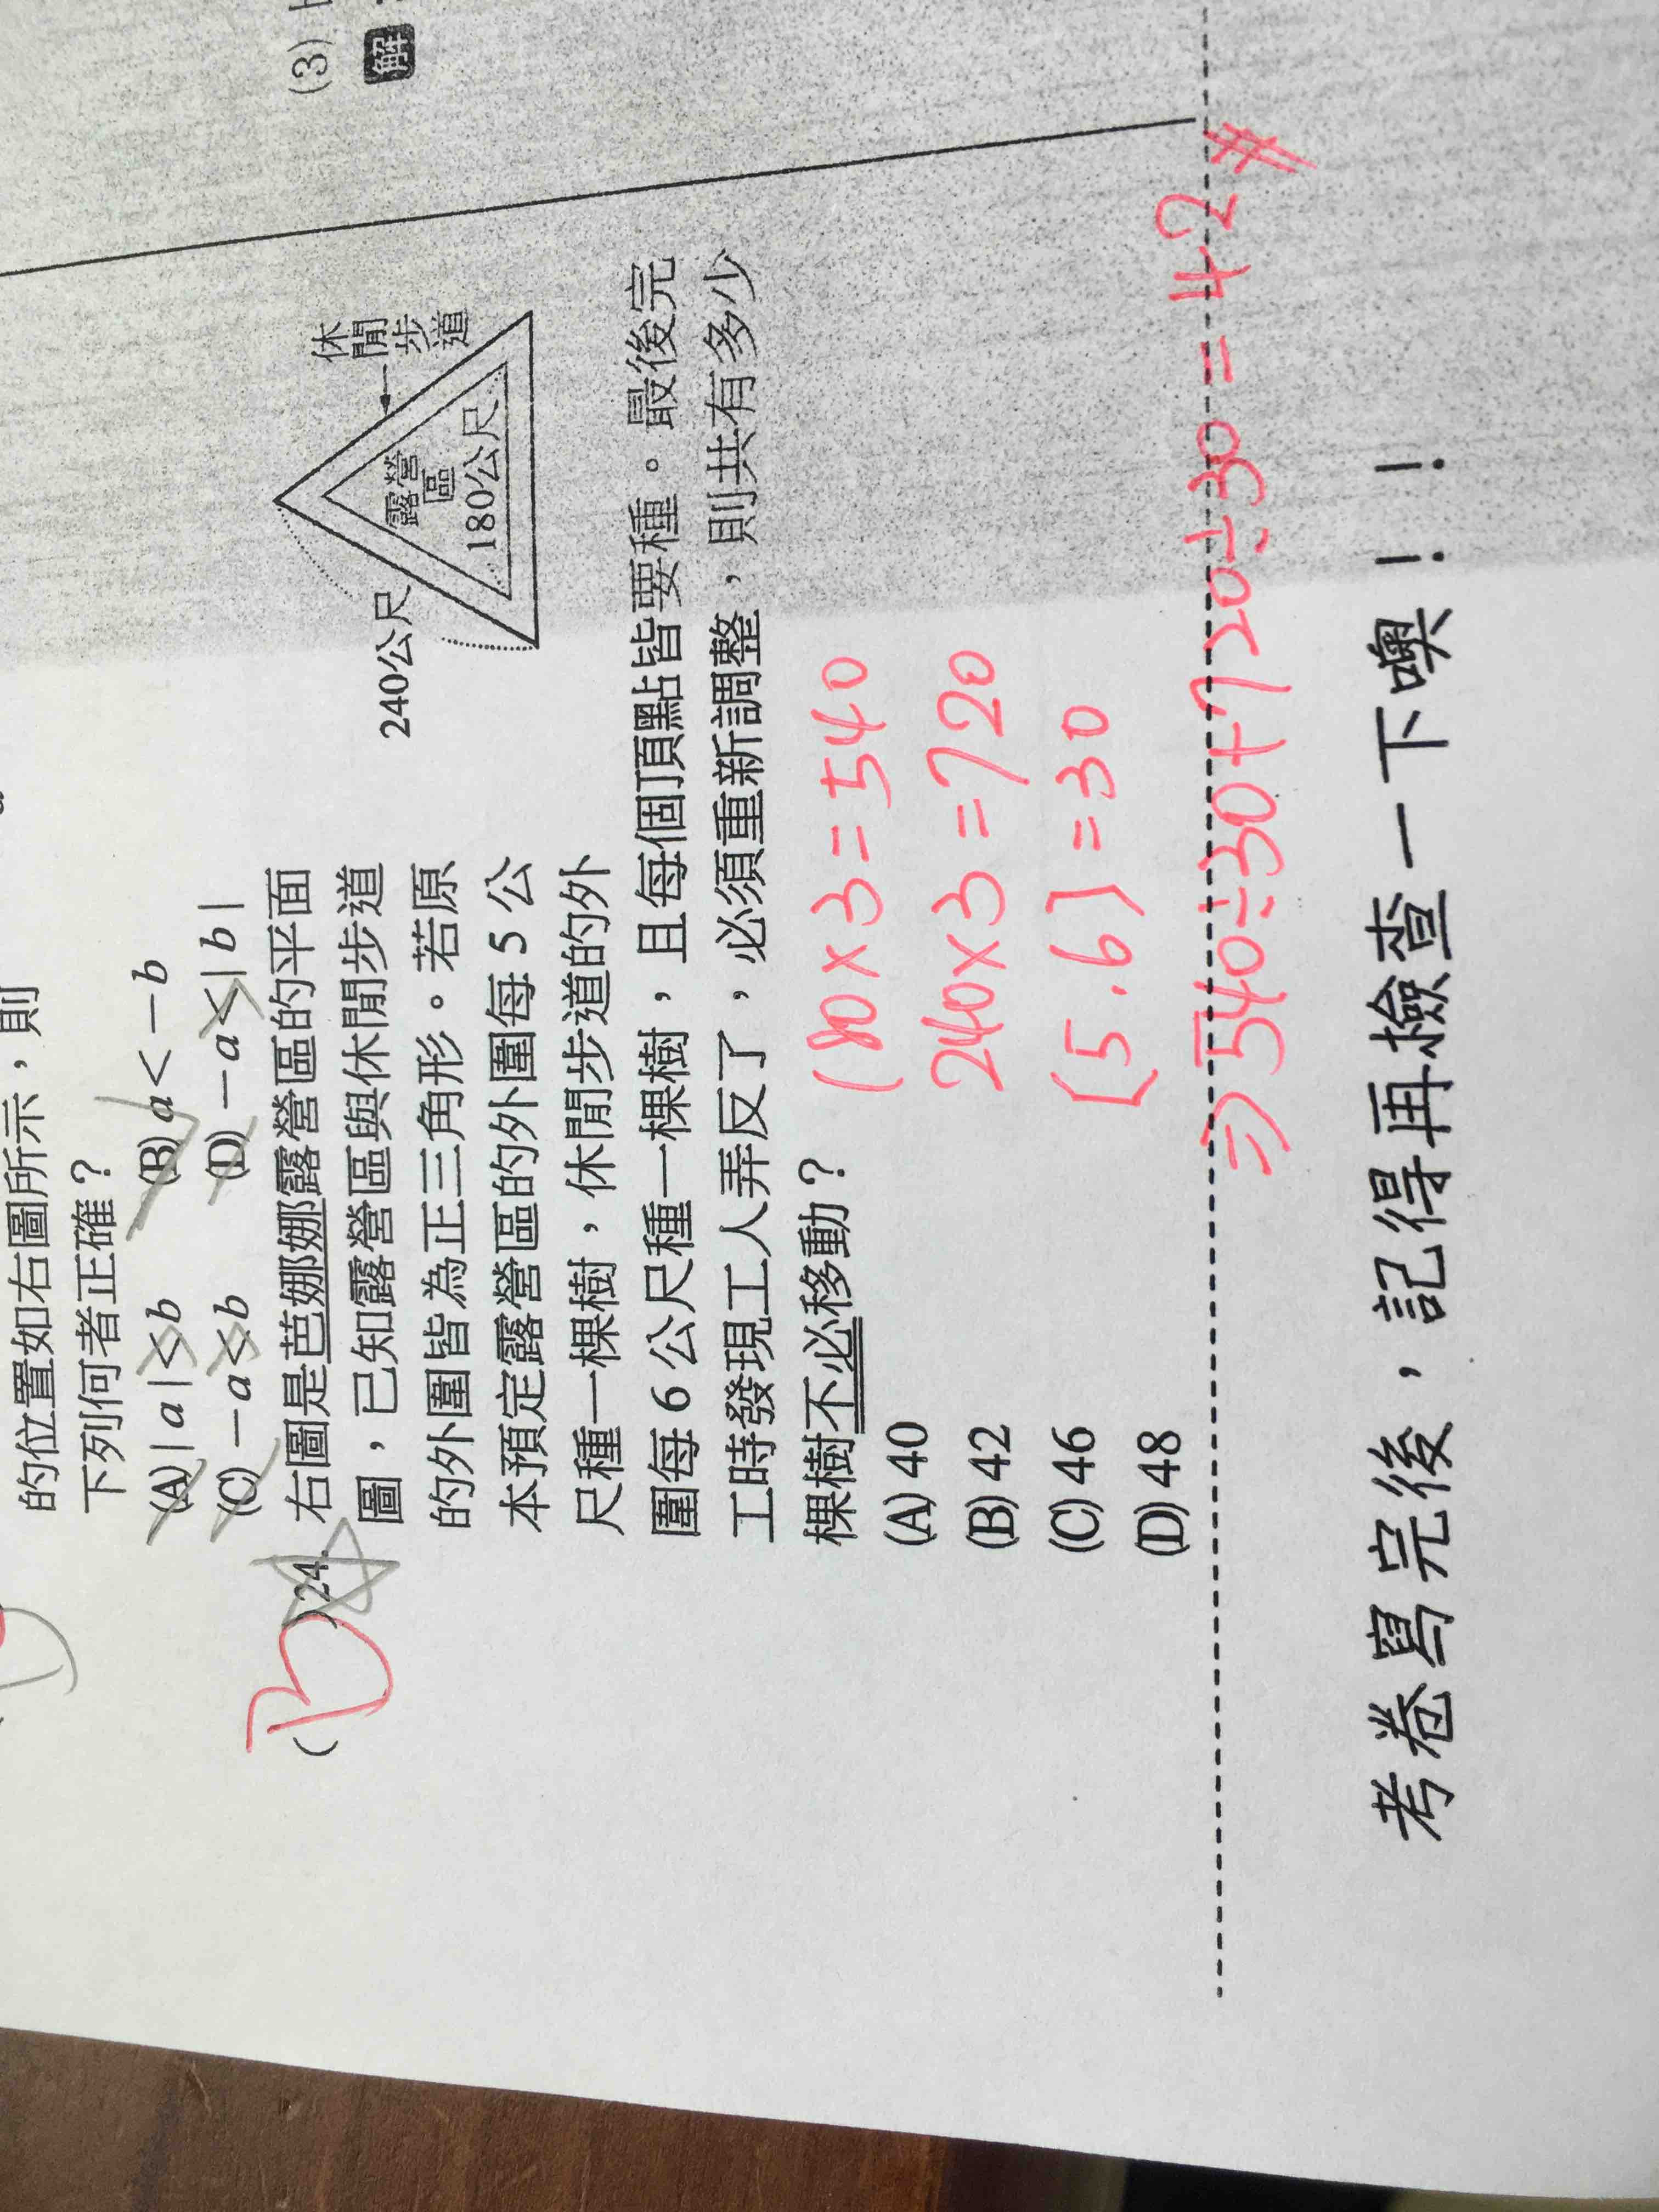 的位置如右圖所示，則
下列何者正確？
(A)|a|<b (B)a<-b
(C)-a<b (D)-a<|b|
(B)24.右圖是芭娜娜露營區的平面
圖，已知露營區與休閒步道
的外圍皆為正三角形。若原
本預定露營區的外圍每5公
尺種一棵樹，休閒步道的外
圍每6公尺種一棵樹，且每個頂點皆要種。最後完
工時發現工人弄反了，必須重新調整，則共有多少
棵樹不必移動？
(A)40
(B)42
(C)46
(D)48
240公尺
露營
區
180公尺
休
閒
步
道
180×3=540
240×3=720
[5.6]=30
⇒540÷30+720÷30=42#
考卷寫完後，記得再檢查一下噢！！！
(3)
解